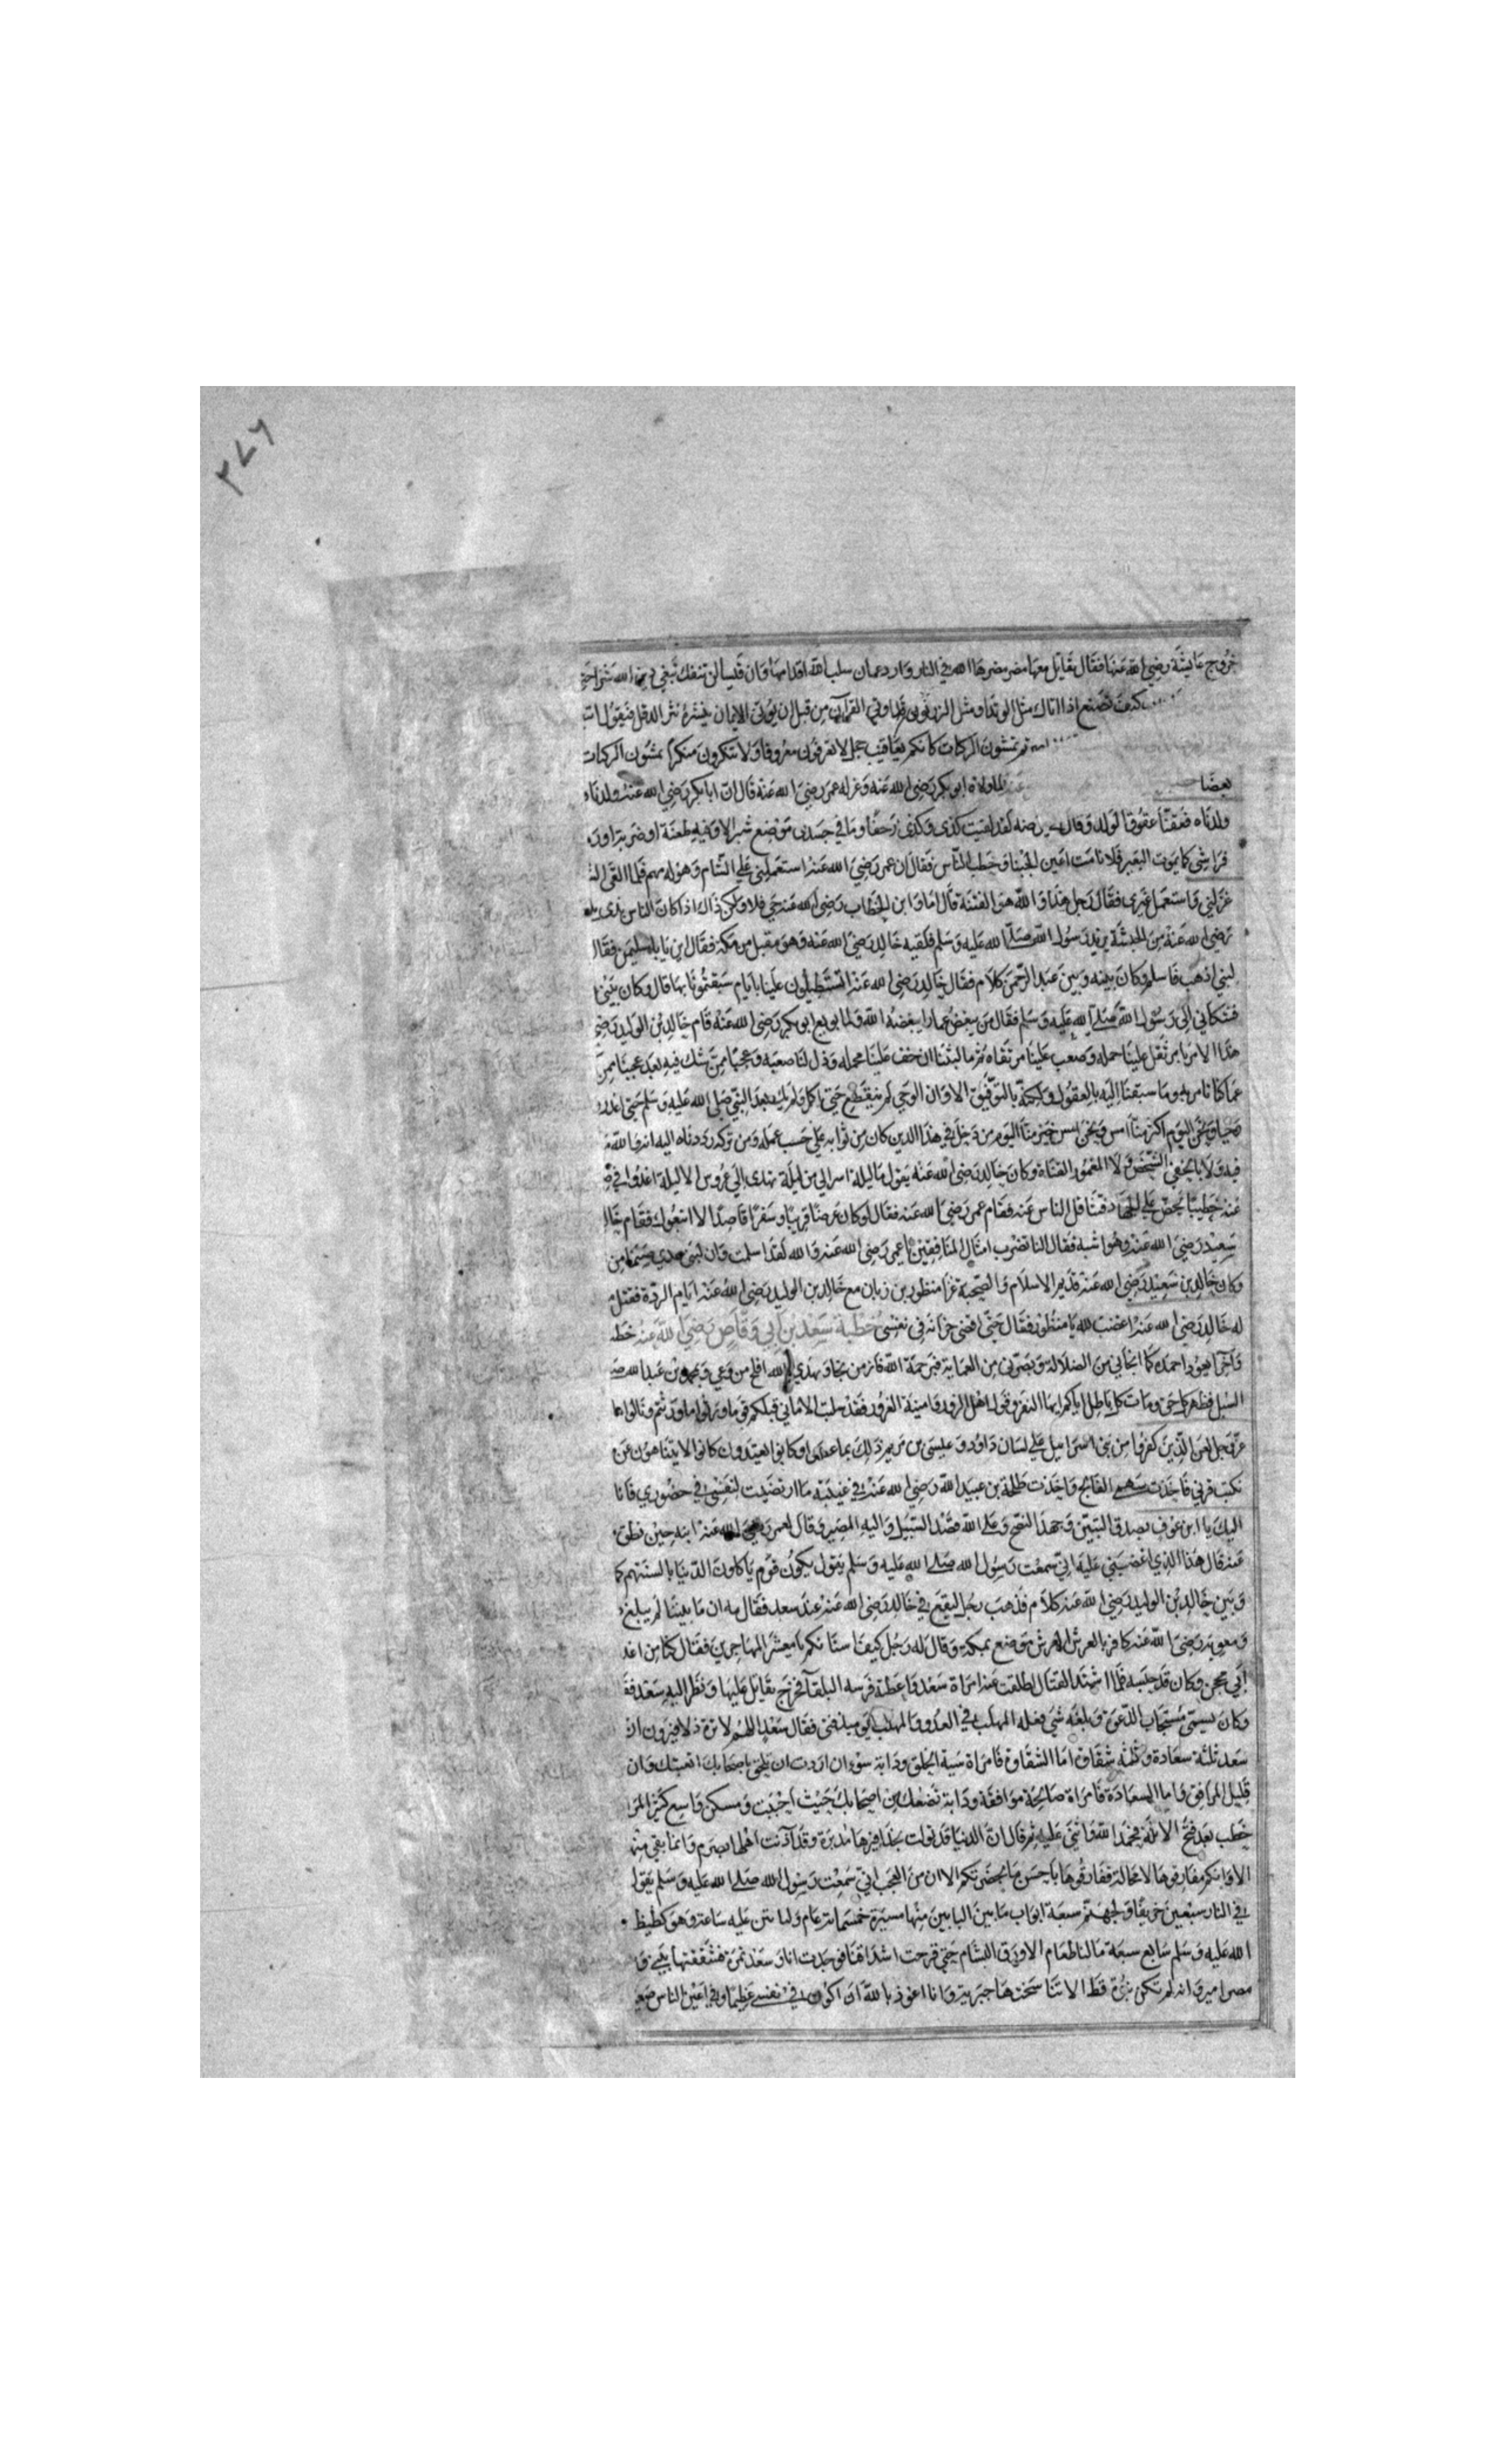 ٢٧٦
خروج عايشة رضي الله عنها فقال يقاتل معها مضر مضرها الله في النار وازد عمان سلب الله اقدامها وان قيسا لن تنفك تبغي دين الله شرا حتي
كيف تصنع اذا اتاك مثل الوتد او مثل الزرنوق قد اوتي القرآن من قبل ان يؤتي الايمان ينثره نثر الدقل فيقول
تمشون الركبات كانكم يعاقيب حجل لا تعرفون معروفا ولا تنكرون منكرا تمشون الركبات
بعضا لما ولاه ابو بكر رضي الله عنه وعزله عمر رضي الله عنه قال ان ابا بكر رضي الله عنه ولدناه
ولدناه فعقنا عقوق الولد وقال لقد لقيت كذي وكذي زحفا وما في جسدي موضع شبر الا وفيه طعنة او ضربة او
فراشي كما يموت البعير فلا نامت اعين الجبنا وخطب الناس فقال ان عمر رضي الله عنه استعملني علي الشام وهو له مهم فلما القي
عزلني واستعمل غيري فقال رجل هذا والله هو الفتنة قال اما وابن الخطاب رضي الله عنه حي فلا ولكن ذاك اذا كان الناس بذي
رضي الله عنه من الحبشة يريد رسول الله صلي الله عليه وسلم فلقيه خالد رضي الله عنه وهو مقبل من مكة فقال اين يا با سليمن فقال
لنبي اذهب فاسلم وكان بينه وبين عبد الرحمن كلام فقال خالد رضي الله عنه اتستطيلون علينا بايام سبقتمونا بها قال وكان بيني
فشكاني الي رسول الله صلي الله عليه وسلم فقال من يبغض عمارا يبغضه الله ولما بويع ابو بكر رضي الله عنه قام خالد بن الوليد رضي
هذا الامر بامر ثقل علينا حمله وصعب علينا مرتقاه ثم ما لبثنا ان خف علينا محمله وذل لنا صعبه وعجبنا ممن شك فيه بعد عجبنا ممن
وما سبقنا اليه بالعقول ولكنه بالتوفيق الا وان الوحي لم ينقطع حتي اكمل ولم يك بعد النبي صلي الله عليه وسلم حتي اعذر
ونحن اليوم اكثر منا امس ونحن امس خير منا اليوم من دخل في هذا الدين كان من ثوابه علي حسب عمله ومن تركه رددناه اليه انه والله
فيه ولا بالخفي الشخص ولا المغمور القناة وكان خالد رضي الله عنه يقول ما ليلة اسر الي من ليلة تهدي الي عروس الا ليلة اغدوا في
عنه خطيبا يحض علي الجهاد فتثاقل الناس عنه فقام عمر رضي الله عنه فقال لو كان عرضا قريبا وسفرا قاصدا لاتبعوك فقام خالد
سعيد رضي الله عنه فقال النا تضرب امثال المنافقين يا عمر رضي الله عنه والله لقد اسلمت وان لبني عدي صنما من
وكان خالد بن سعيد رضي الله عنه قديم الاسلام والصحبة غزا منظور بن زبان مع خالد بن الوليد رضي الله عنه ايام الردة فقتل
له خالد رضي الله عنه اغضبت لله يا منظور فقال حتي اقضي حزازة في نفسي خطبة سعد بن ابي وقاص رضي الله عنه خطب
وآخرا يعود احمده كما انجاني من الضلالة وبصرني من العماية فبرحمة الله فاز من نجا وبهدي الله افلح من وعي وبمحمد بن عبد الله
السبل فظهر كل حق ومات كل باطل اياكم ايها النفر وقول اهل الزور وامنية الغرور فقد سلبت الاماني قبلكم قوما ورثوا ما ورثتم ونالوا ما
عز وجل لعن الذين كفروا من بني اسرائيل علي لسان داود وعيسي بن مريم ذلك بما عصوا وكانوا يعتدون كانوا لا يتناهون عن
نكبت قرني فاخذت سهمي الفالج واخذت طلحة بن عبيد الله رضي الله عنه في غيبته ما ارتضيت لنفسي في حضوري فانا
اليك يا ابن عوف بصدق النيتين وجهد النصح وعلي الله قصد السبيل واليه المصير وقال لعمر رضي الله عنه ابنه حين نطق
عنه قال هذا الذي اغضبني عليه اني سمعت رسول الله صلي الله عليه وسلم يقول يكون قوم ياكلون الدنيا بالسنتهم كما
وبين خالد بن الوليد رضي الله عنه كلام فذهب رجل ليقع في خالد رضي الله عنه عند سعد فقال مه ان ما بيننا لم يبلغ
ومعوية رضي الله عنه كافر بالعرش موضع بمكة وقال له رجل كيف استانكم يا معشر المهاجرين فقال كنا من
ابي محجن وكان قد حبسه فلما اشتد القتال اطلقت عنه امراة سعد واعطته فرسه البلقا فخرج يقاتل عليها ونظر اليه سعد
وكان يسمي مستجاب الدعوة وبلغه شي فعله المهلب في العدو والمهلب يوميذ فتي فقال سعد اللهم لا تره ذلا فيرون ان
سعد ثلثة سعادة وثلثة شقاوة اما الشقاوة فامراة سيئة الخلق ودابة سوء ان اردت ان تلحق باصحابك اتعبتك وان
قليل المرافق واما السعادة فامراة صالحة موافقة ودابة تضعك من اصحابك حيث احببت ومسكن واسع كثير
خطب بعد فتح الابلة فحمد الله واثني عليه ثم قال ان الدنيا قد تولت بحذافيرها مدبرة وقد آذنت اهلها بصرم وانما بقي منها
الا وانكم مفارقوها لا محالة ففارقوها باحسن ما بحضرتكم الا ان من العجب اني سمعت رسول الله صلي الله عليه وسلم يقول
في النار سبعين خريفا ولجهنم سبعة ابواب ما بين البابين منها مسيرة خمسماية عام ولياتين عليه ساعة وهو كظيظ
الله عليه وسلم سابع سبعة ما لنا طعام الا ورق البشام حتي قرحت اشداقنا فوجدت انا وسعد تمرة فشققتها بيني و
مصر امير وانه لم تكن نبوة قط الا تناسختها جبرية وانا اعوذ بالله ان اكون في نفسي عظيما وفي اعين الناس